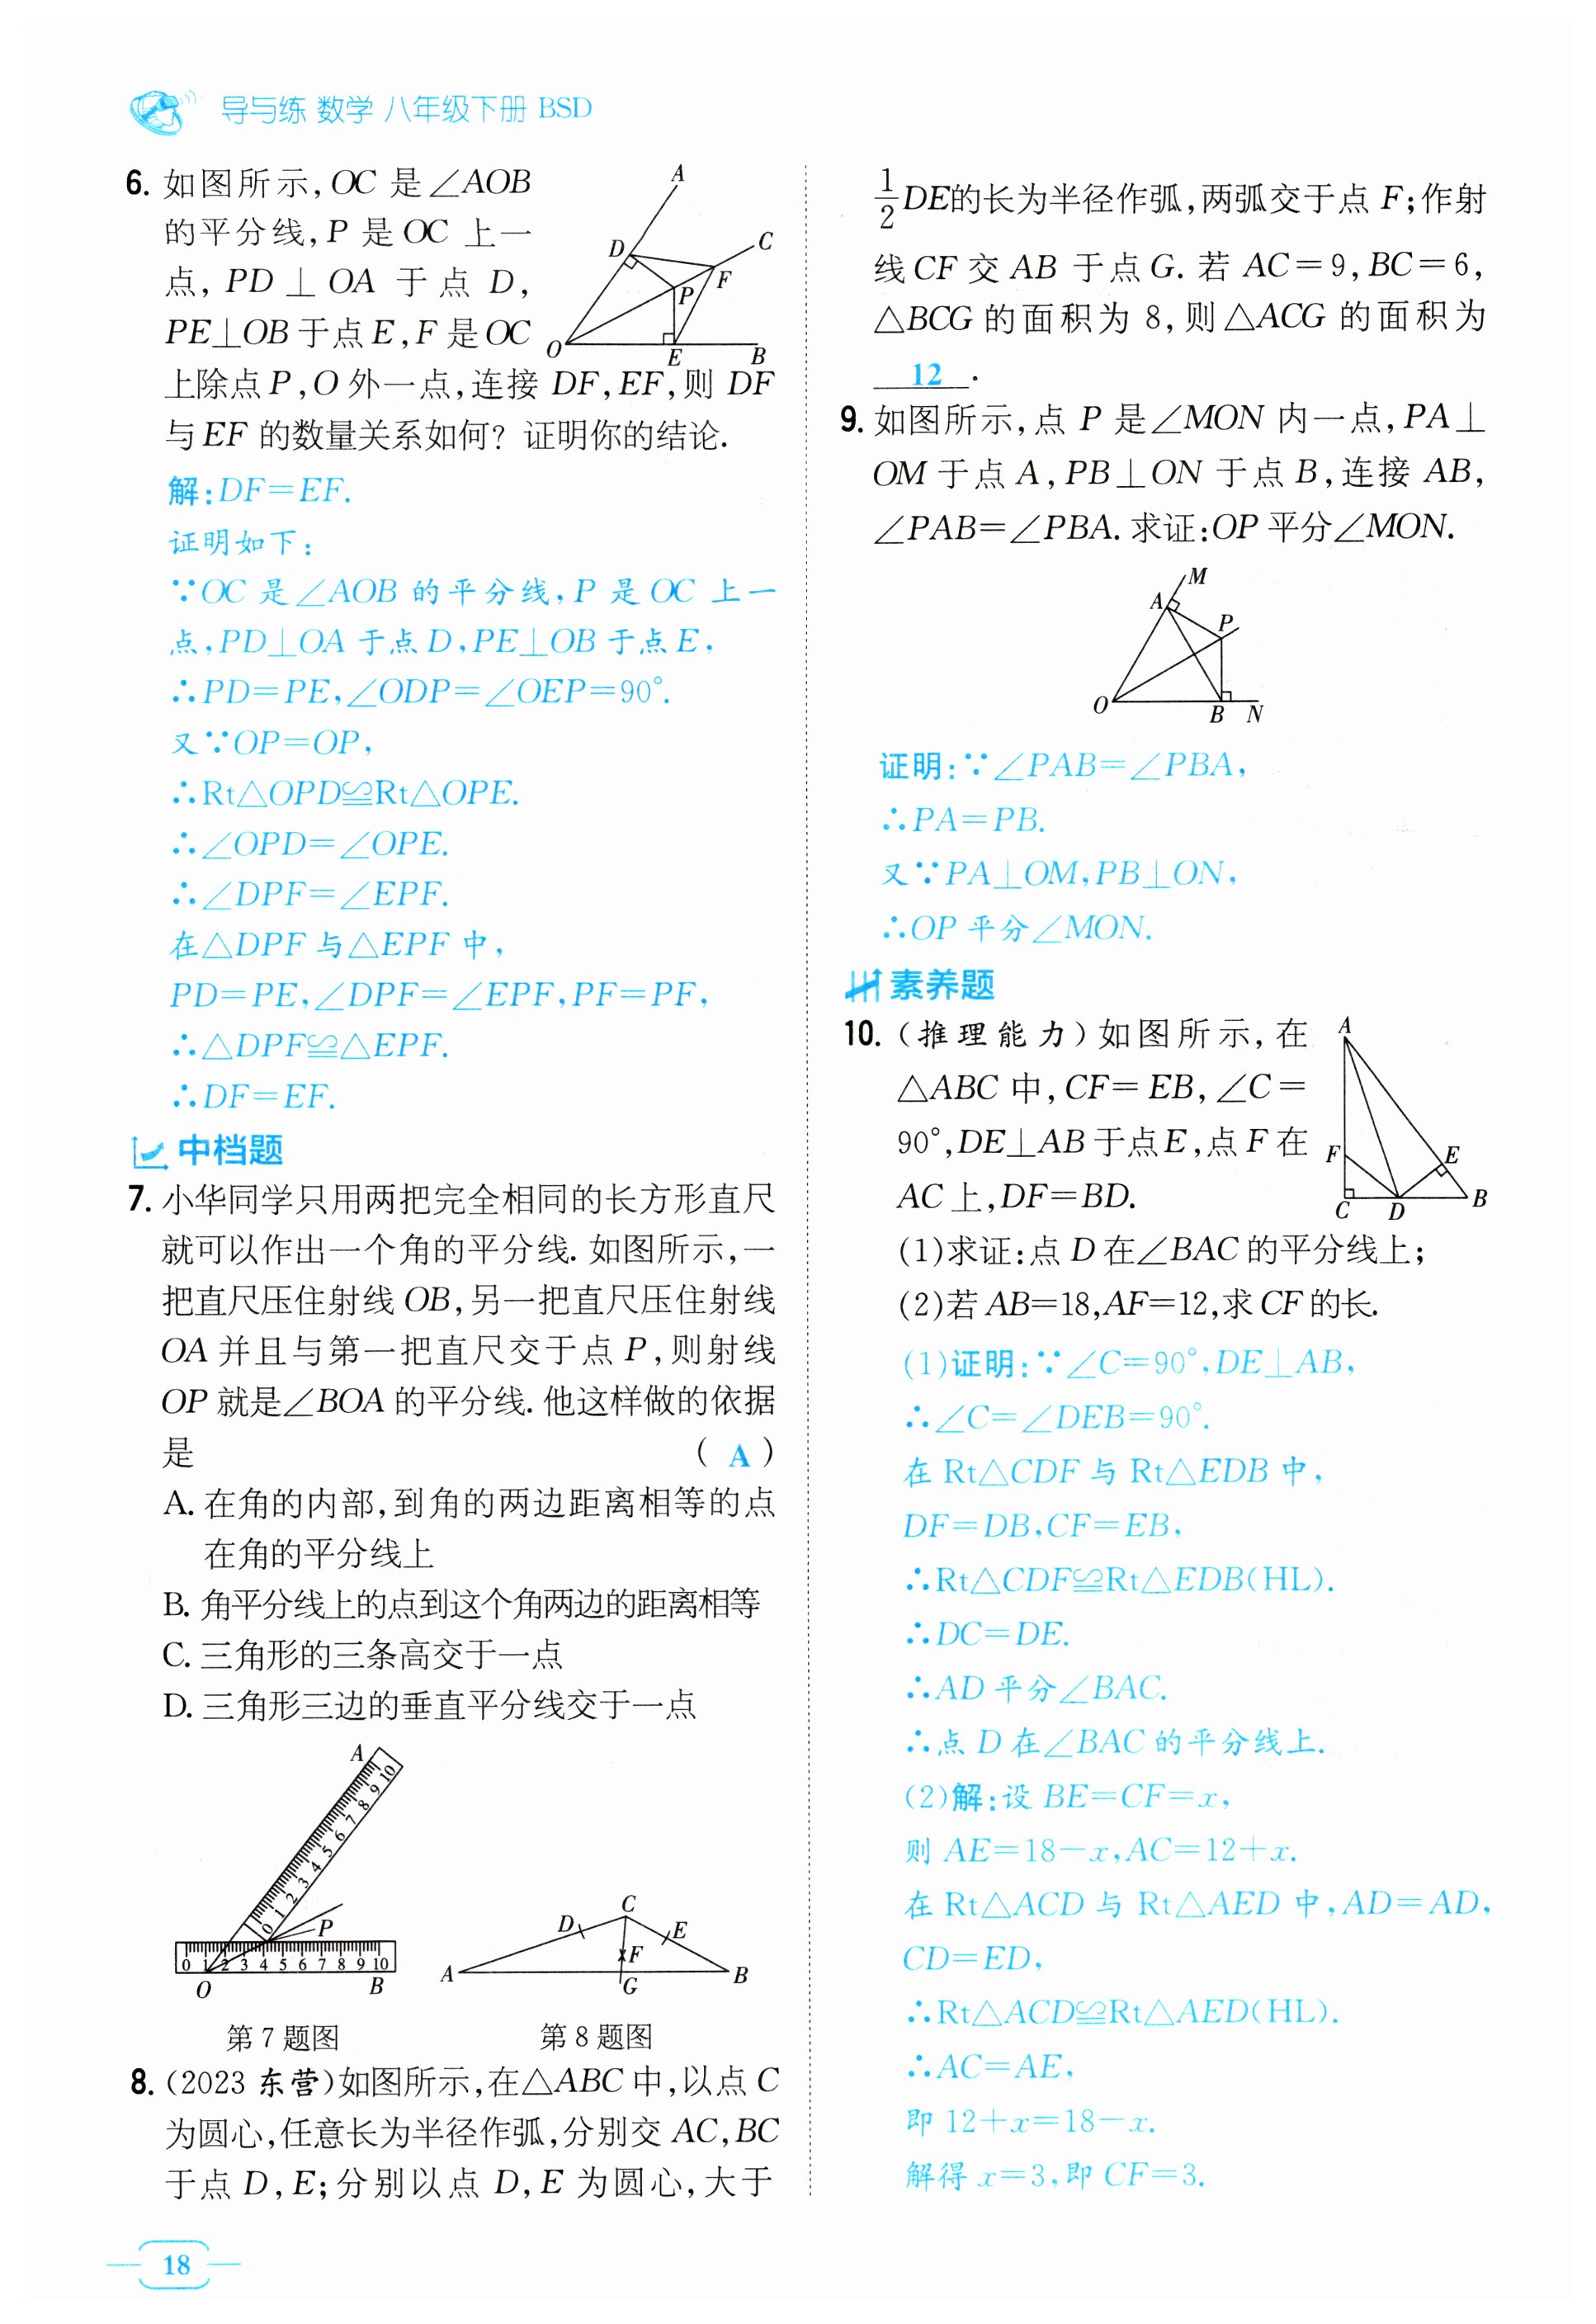 导与练 数学 八年级下册 BSD
6. 如图所示,OC 是∠AOB
的平分线,P 是 OC 上一
点, PD ⊥ OA 于点 D,
PE⊥OB 于点 E,F 是 OC
上除点 P,O 外一点,连接 DF,EF,则 DF
与 EF 的数量关系如何? 证明你的结论.
A
D
C
F
P
O
E
B
解:DF=EF.
证明如下:
∵OC 是∠AOB 的平分线,P 是 OC 上一
点,PD⊥OA 于点 D,PE⊥OB 于点 E,
∴PD=PE,∠ODP=∠OEP=90°.
又∵OP=OP,
∴Rt△OPD≌Rt△OPE.
∴∠OPD=∠OPE.
∴∠DPF=∠EPF.
在△DPF 与△EPF 中,
PD=PE,∠DPF=∠EPF,PF=PF,
∴△DPF≌△EPF.
∴DF=EF.
中档题
7. 小华同学只用两把完全相同的长方形直尺
就可以作出一个角的平分线. 如图所示,一
把直尺压住射线 OB,另一把直尺压住射线
OA 并且与第一把直尺交于点 P,则射线
OP 就是∠BOA 的平分线. 他这样做的依据
是 ( A )
A. 在角的内部,到角的两边距离相等的点
在角的平分线上
B. 角平分线上的点到这个角两边的距离相等
C. 三角形的三条高交于一点
D. 三角形三边的垂直平分线交于一点
A
0 1 2 3 4 5 6 7 8 9 10
P
0 1 2 3 4 5 6 7 8 9 10
O
B
C
D
E
F
A
G
B
第 7 题图
第 8 题图
8. (2023 东营)如图所示,在△ABC 中,以点 C
为圆心,任意长为半径作弧,分别交 AC,BC
于点 D,E;分别以点 D,E 为圆心,大于
1/2 DE的长为半径作弧,两弧交于点 F;作射
线 CF 交 AB 于点 G. 若 AC=9,BC=6,
△BCG 的面积为 8,则△ACG 的面积为
12 .
9. 如图所示,点 P 是∠MON 内一点,PA⊥
OM 于点 A,PB⊥ON 于点 B,连接 AB,
∠PAB=∠PBA. 求证:OP 平分∠MON.
M
A
P
O
B
N
证明:∵∠PAB=∠PBA,
∴PA=PB.
又∵PA⊥OM,PB⊥ON,
∴OP 平分∠MON.
素养题
10. (推理能力)如图所示,在
△ABC 中,CF=EB,∠C=
90°,DE⊥AB 于点 E,点 F 在
AC 上,DF=BD.
A
F
E
C
D
B
(1)求证:点 D 在∠BAC 的平分线上;
(2)若 AB=18,AF=12,求 CF 的长.
(1)证明:∵∠C=90°,DE⊥AB,
∴∠C=∠DEB=90°.
在 Rt△CDF 与 Rt△EDB 中,
DF=DB,CF=EB,
∴Rt△CDF≌Rt△EDB(HL).
∴DC=DE.
∴AD 平分∠BAC.
∴点 D 在∠BAC 的平分线上.
(2)解:设 BE=CF=x,
则 AE=18-x,AC=12+x.
在 Rt△ACD 与 Rt△AED 中,AD=AD,
CD=ED,
∴Rt△ACD≌Rt△AED(HL).
∴AC=AE,
即 12+x=18-x.
解得 x=3,即 CF=3.
18